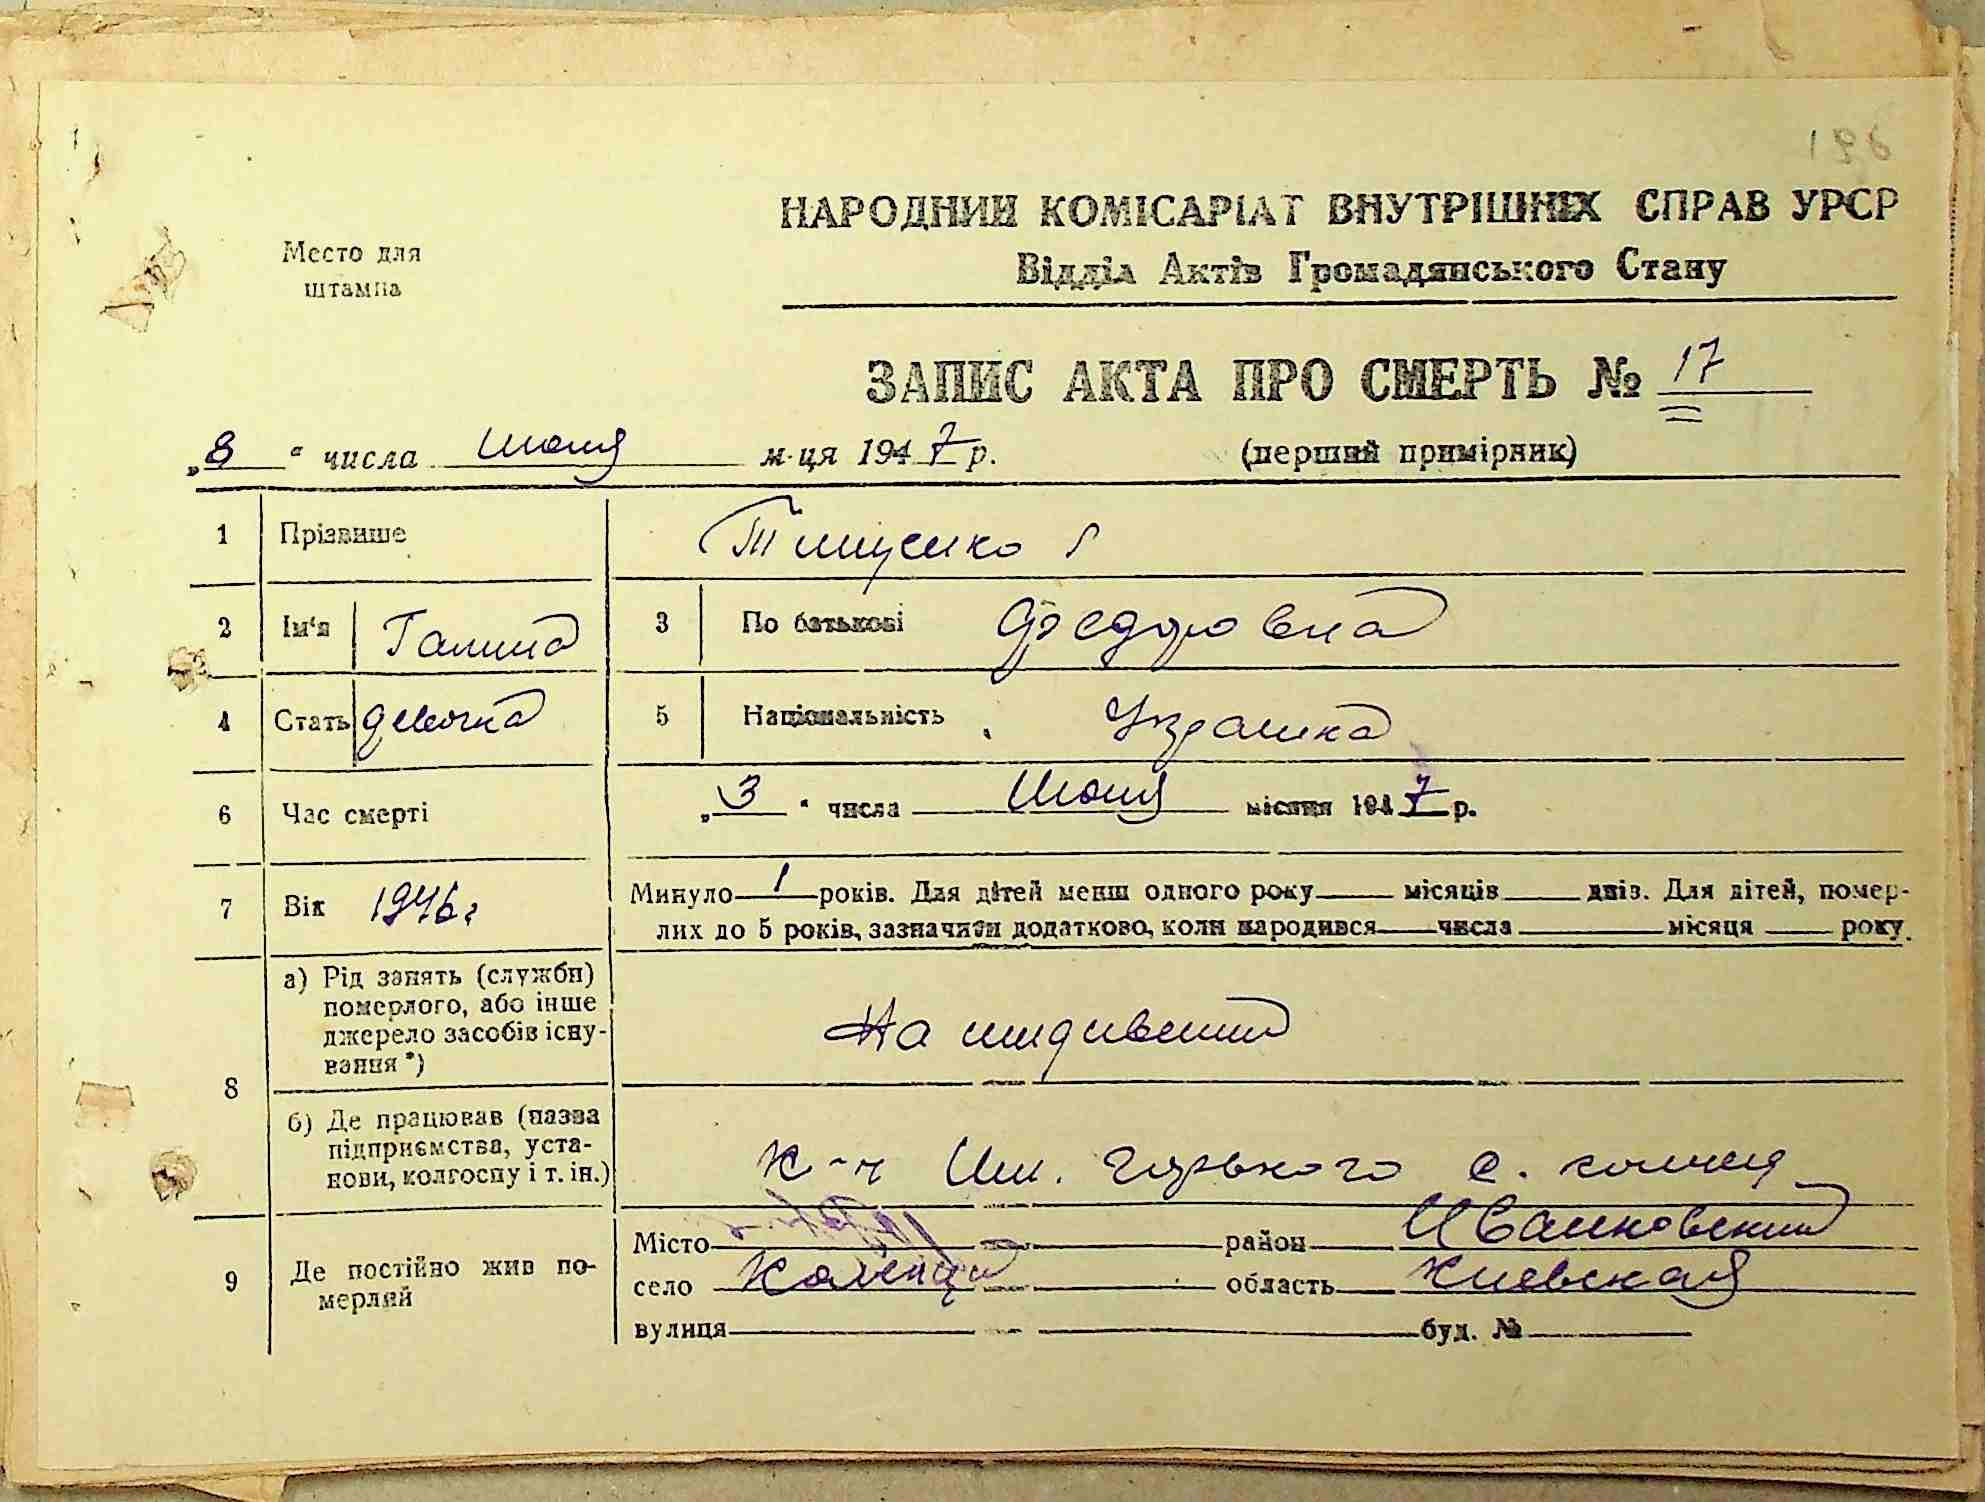 196
Место для
штампа
НАРОДНИЙ КОМІСАРІАТ ВНУТРІШНІХ СПРАВ УРСР
Відділ Актів Громадянського Стану
ЗАПИС АКТА ПРО СМЕРТЬ № 17
„8“ числа июня м-ця 1947 р. (перший примірник)
1 Прізвише Тищенко
2 Ім'я Галина 3 По батькові Федоровна
4 Стать девочка 5 Національність Украинка
6 Час смерті „3“ числа Июня місяця 1947 р.
7 Вік 1946 г Минуло 1 років. Для дітей менш одного року місяців днів. Для дітей, помер-
лих до 5 років, зазначити додатково, коли народився числа місяця року.
8 а) Рід занять (служби)
померлого, або інше
джерело засобів існу-
вання *)
На иждивении
б) Де працював (назва
підприємства, уста-
нови, колгоспу і т. ін.)
К-ч Им. Горького с.
9 Де постійно жив по-
мерлий
Місто район Иванковский
село область Киевская
вулиця буд. №